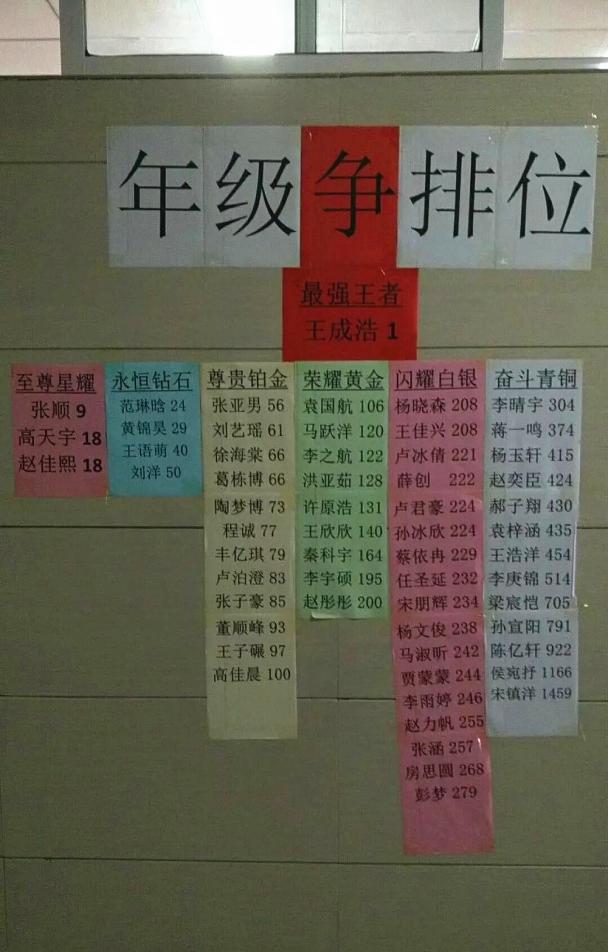 年级争排位
最强王者
王成浩 1
至尊星耀
张顺 9
高天宇 18
赵佳熙 18
永恒钻石
范琳晗 24
黄锦昊 29
王语萌 40
刘洋 50
尊贵铂金
张亚男 56
刘艺瑶 61
徐海棠 66
葛栋博 66
陶梦博 73
程诚 77
丰亿琪 79
卢泊澄 83
张子豪 85
董顺峰 93
王子碾 97
高佳晨 100
荣耀黄金
袁国航 106
马跃洋 120
李之航 122
洪亚茹 128
许原浩 131
王欣欣 140
秦科宇 164
李宇硕 195
赵彤彤 200
闪耀白银
杨晓森 208
王佳兴 208
卢冰倩 221
薛创 222
卢君豪 224
孙冰欣 224
蔡依冉 229
任圣延 232
宋朋辉 234
杨文俊 238
马淑昕 242
贾蒙蒙 244
李雨婷 246
赵力帆 255
张涵 257
房思圆 268
彭梦 279
奋斗青铜
李晴宇 304
蒋一鸣 374
杨玉轩 415
赵奕臣 424
郝子翔 430
袁梓涵 435
王浩洋 454
李庚锦 514
梁宸恺 705
孙宣阳 791
陈亿轩 922
侯宛抒 1166
宋镇洋 1459